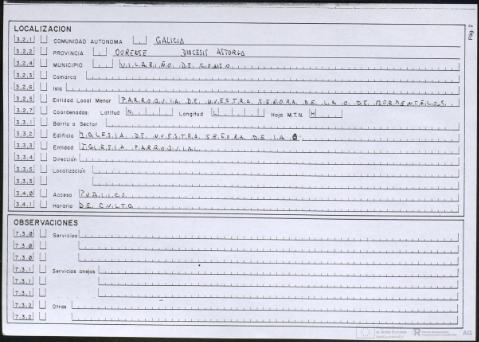 LOCALIZACION
3.2.1 COMUNIDAD AUTONOMA GALICIA
3.2.2 PROVINCIA OURENSE DIOCESIS ASTORGA
3.2.4 MUNICIPIO VILARIÑO DE CONSO
3.2.5 Comarca
3.2.6 Isla
3.2.6 Entidad Local Menor PARROQUIA DE NUESTRA SEÑORA DE LA O DE
3.2.7 Coordenadas: Latitud N Longitud L Hoja M.T.N. H
3.3.1 Barrio o Sector
3.3.2 Edificio IGLESIA DE NUESTRA SEÑORA DE LA O
3.3.3 Entidad IGLESIA PARROQUIAL
3.3.4 Dirección
3.3.5 Localización
3.3.5
3.4.0 Acceso PUBLICO
3.4.1 Horario DE CULTO
OBSERVACIONES
7.3.0 Servicios
7.3.0
7.3.0
7.3.1 Servicios anejos
7.3.1
7.3.1
7.3.2 Otros
7.3.2
Pág. 2